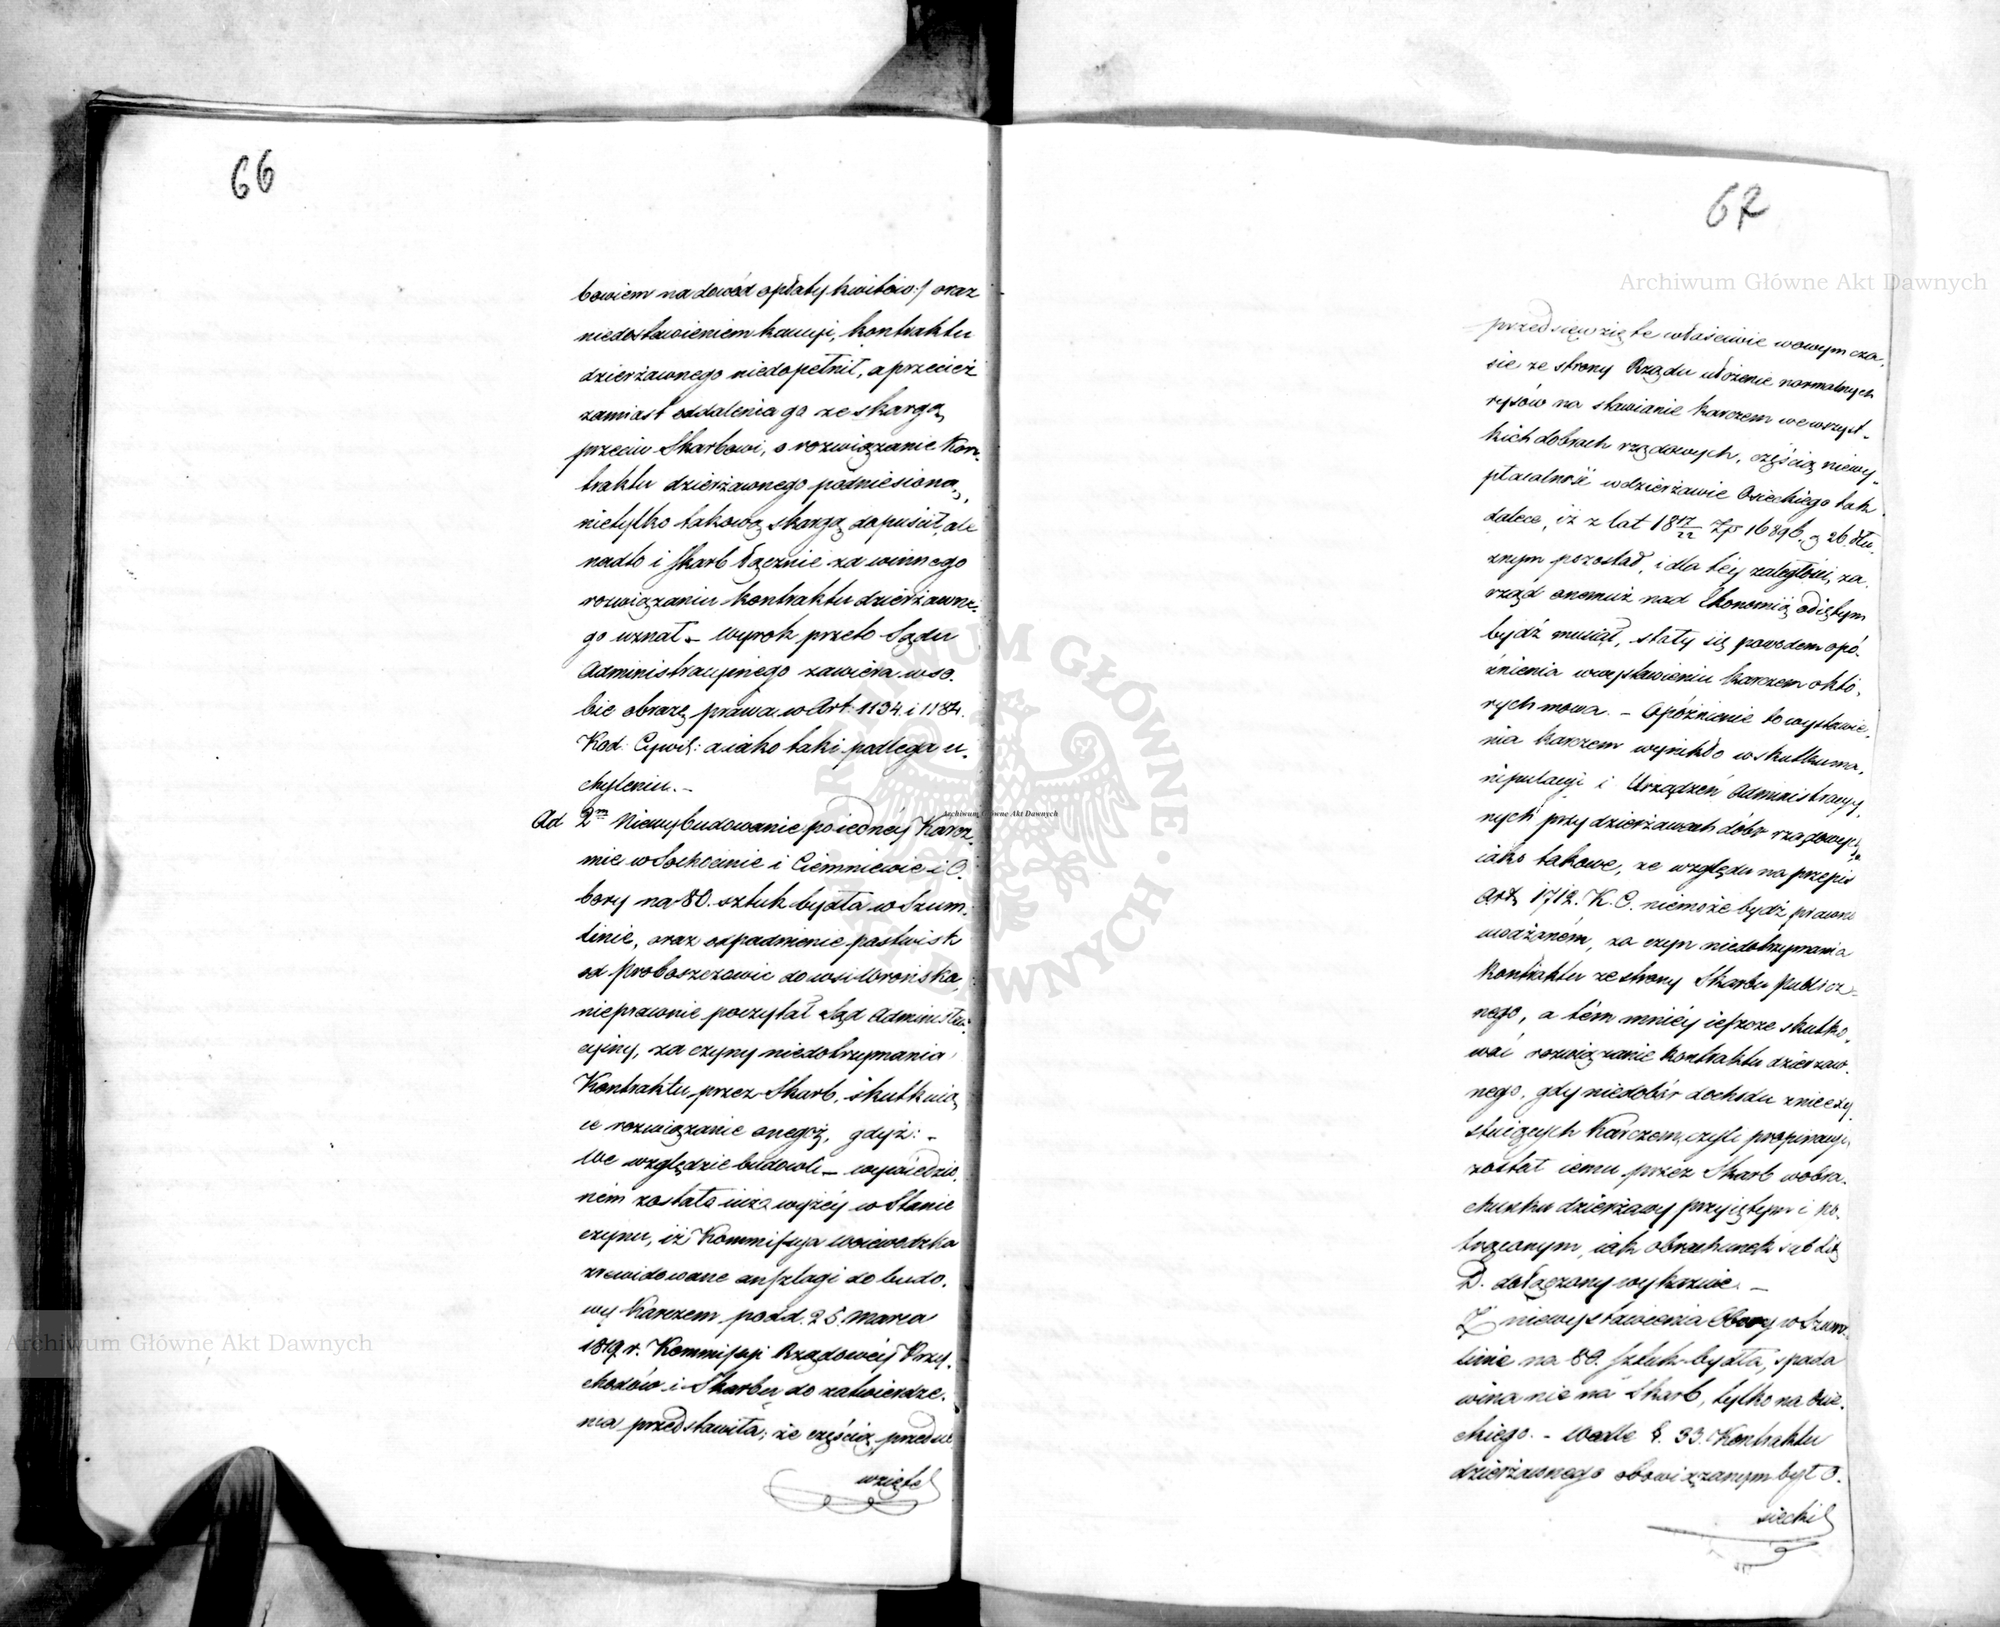 66
bowiem na dowód opłaty kwitów:/ oraz
niedostawieniem kaucyi, kontraktu
dzierżawnego niedopełnił, a przecież
zamiast oddalenia go ze skargą
przeciw Skarbowi, o rozwiązanie Kon-
traktu dzierżawnego podniesioną,
nietylko takową skargę dopuścił, ale
nadto i Skarb łącznie za winnego
rozwiązaniu kontraktu dzierżawne-
go uznał. Wyrok przeto Sądu
Administracyinego zawiera w so-
bie obrazę prawa w Art. 1134. i 1184.
Kod: Cywil: a iako taki podlega u-
chyleniu. –
Ad 2m Niewybudowanie po iednéy Karcz-
mie w Sochocinie i Ciemniewie i O-
bory na 80. sztuk bydła w Szum-
linie, oraz odpadnienie pastwisk
od proboszczowic do wsi Wrońska,
nieprawnie poczytał Sąd Administra-
cyiny, za czyny niedotrzymania
Kontraktu przez Skarb, skutkuią-
ce rozwiązanie onegoż, gdyż: –
We względzie budowli – wywiedzio-
ném zostało iuż wyżéy w Stanie
czynu, iż Kommissya Woiewodzka
zrewidowane anszlagi do budo-
wy Karczem pod d. 25. Marca
1819. r. Kommissyi Rządowéy Przy-
chodów i Skarbu do zatwierdze-
nia przedstawiła; że częścią przedsię
wzięte
67
Archiwum Główne Akt Dawnych
przedsięwzięte właściwie wowym cza-
sie ze strony Rządu ułożenie normalnych
rysów na stawianie karczem we wszyst-
kich dobrach rządowych, częścią niewy-
płacalność w dzierżawie Osieckiego tak
dalece, iż z lat 18 17/22 Zp 16896. g 26. dłu-
żnym pozostał, i dla téy zaległości, za-
rząd onemuż nad Ekonomią odiętym
bydź musiał, stały się powodem opó-
źnienia w wystawieniu karczem o któ-
rych mowa. – Opóźnienie to wystawie-
nia karczem wynikło w skutku ma-
nipulacyi i Urządzeń Administracyi-
nych przy dzierżawach dóbr rządowych,
iako takowe, ze względu na przepis
Art. 1712. K. C. niemoże bydź prawnie
uważaném, za czyn niedotrzymania
Kontraktu ze strony Skarbu Publicz-
nego, a tém mniéy ieszcze skutko-
wać rozwiązanie kontraktu dzierżaw-
nego, gdy niedobór dochodu z nieexy-
stuiących Karczem, czyli propinacyi,
został iemu przez Skarb w obra-
chunku dzierżawy przyiętym i po-
trąconym, iak obrachunek sub Lit:
D. dołączony wykazuie. –
Z niewystawienia Obory w Szum-
linie na 80. sztuk bydła, spada
wina nie na Skarb, tylko na Osie-
ckiego. – Wedle §. 33. Kontraktu
dzierżawnego obowiązanym był O-
siecki
Archiwum Główne Akt Dawnych
Archiwum Główne Akt Dawnych
ARCHIWUM GŁÓWNE AKT DAWNYCH